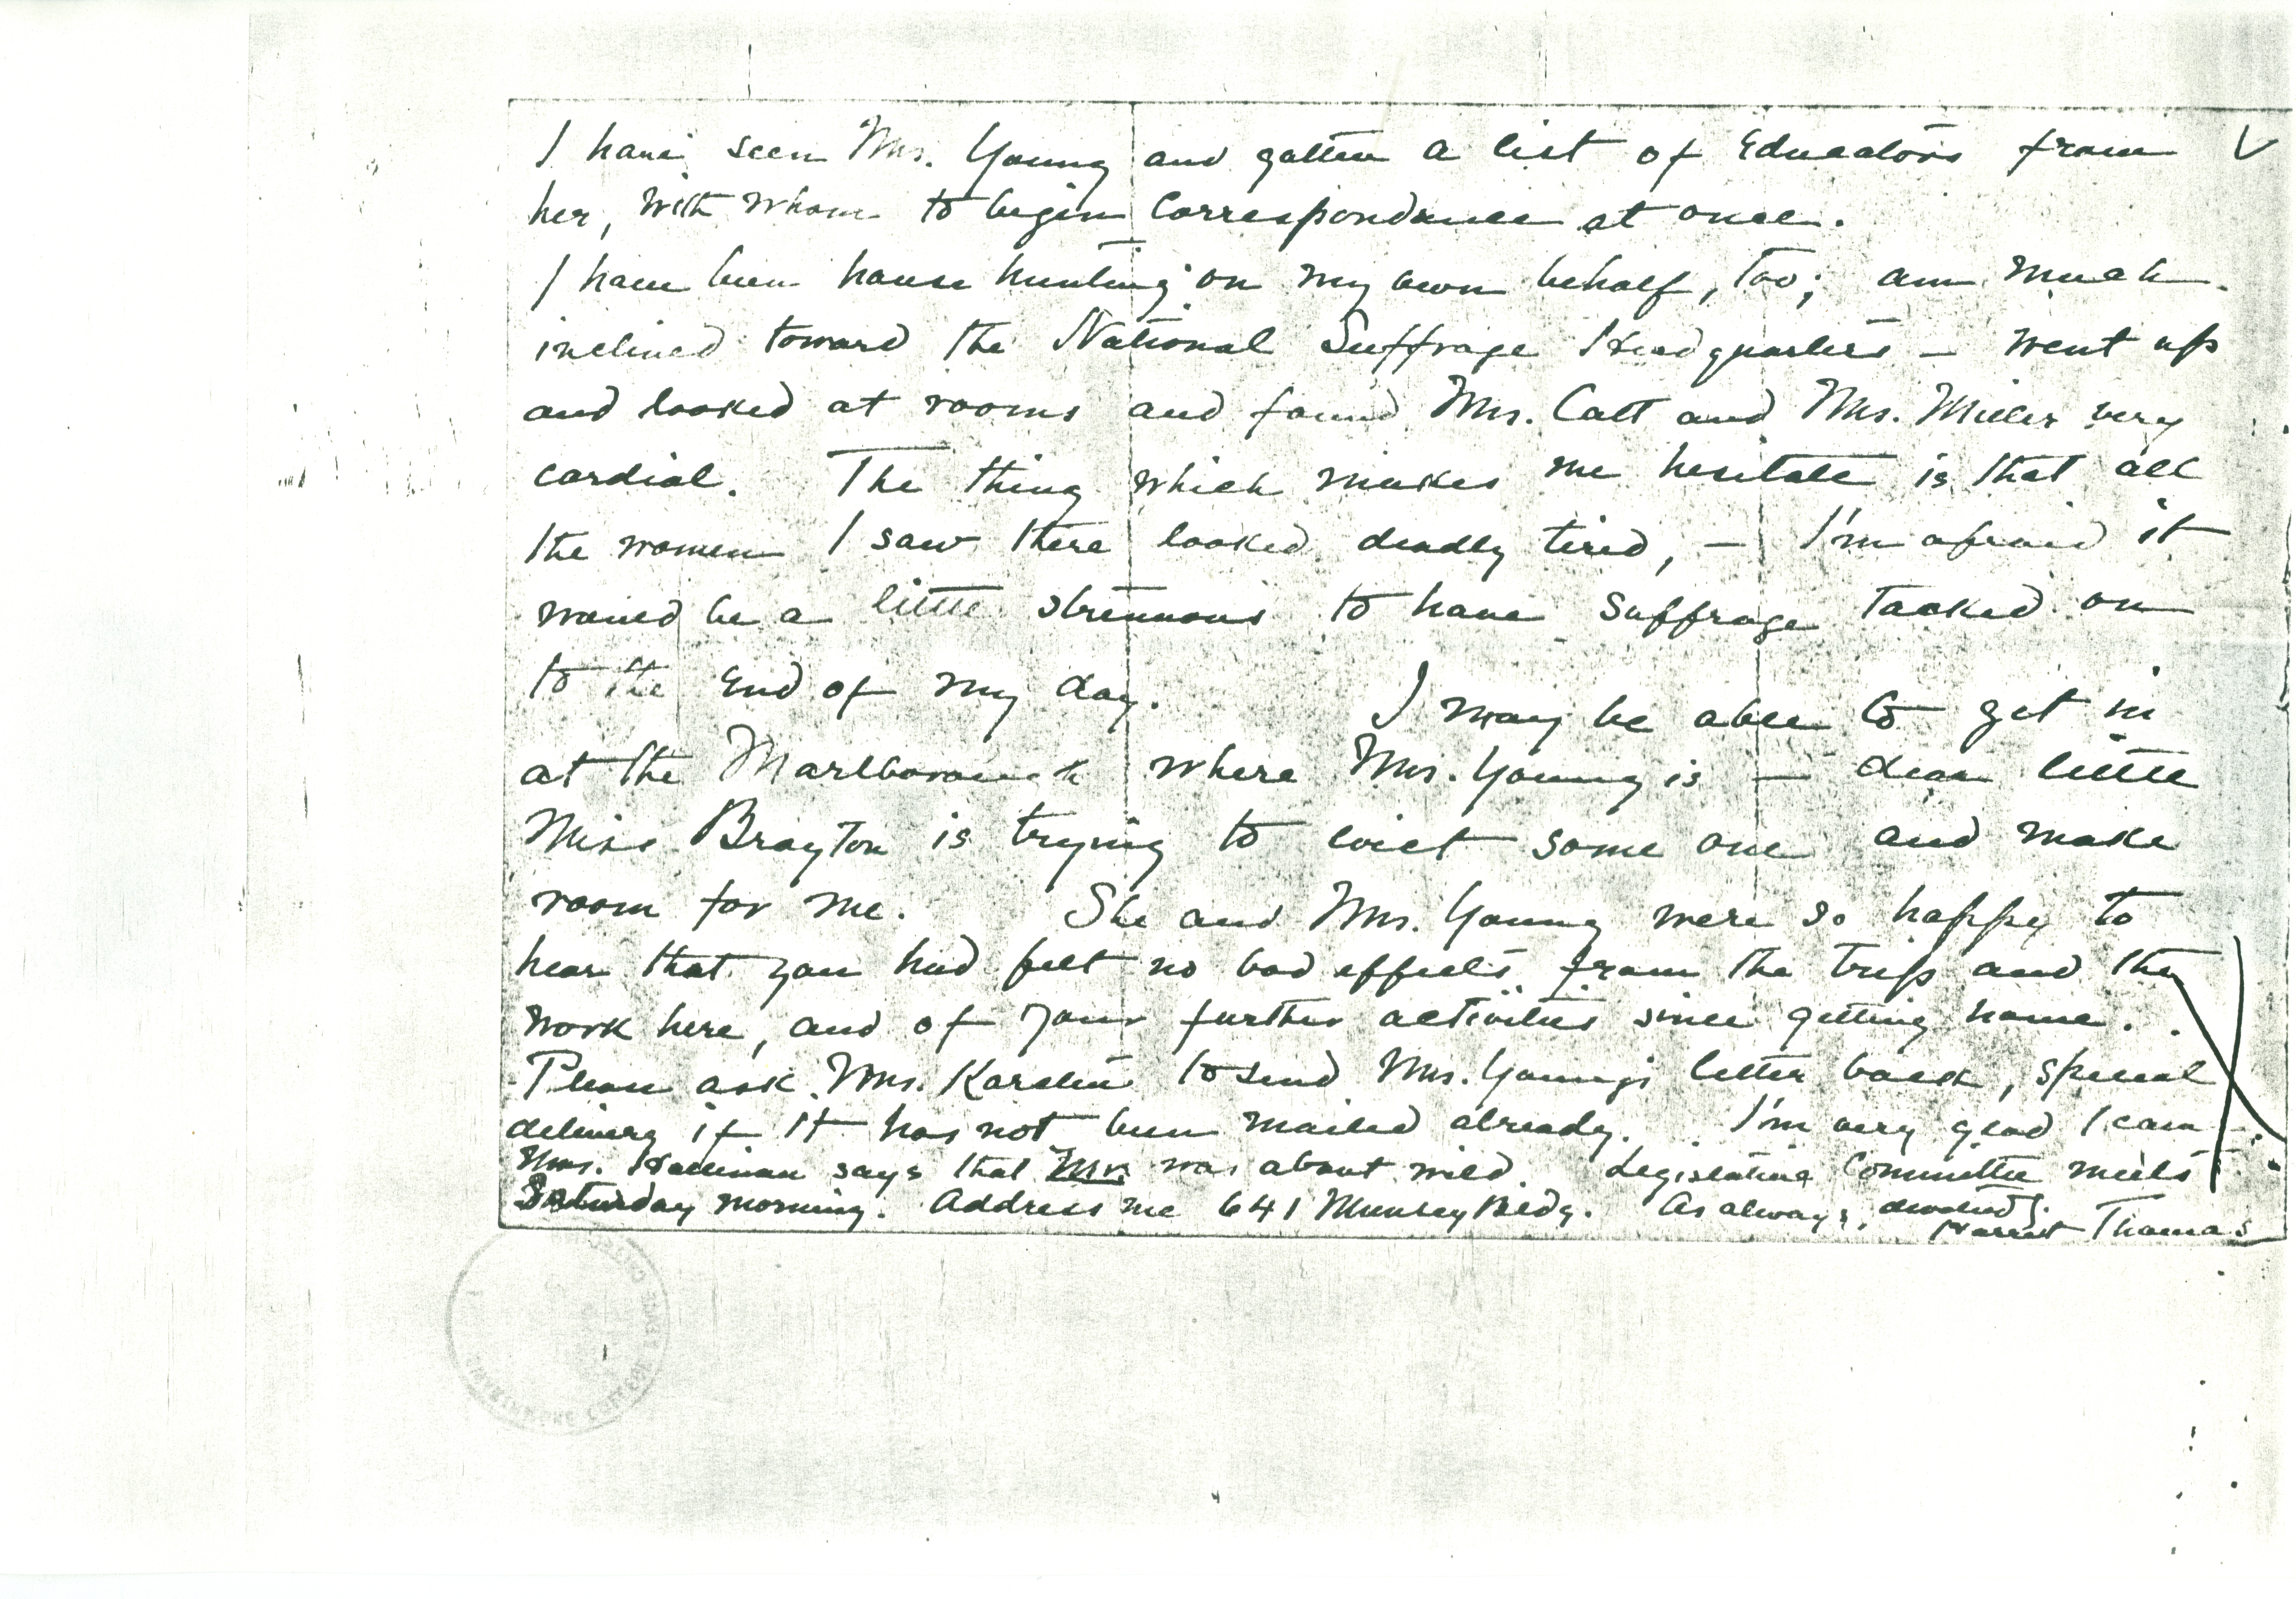 I have seen Mrs. Young and gotten a list of Educators from
her, with whom to begin correspondence at once.
I have been house hunting on my own behalf, too; am much
inclined toward the National Suffrage Headquarters — went up
and looked at rooms and found Mrs. Catt and Mrs. Miller very
cordial. The thing which makes me hesitate is that all
the women I saw there looked deadly tired, — I'm afraid it
would be a little strenuous to have Suffrage tacked on
to the end of my day. I may be able to get in
at the Marlborough where Mrs. Young is — dear little
Miss Brayton is trying to evict some one and make
room for me. She and Mrs. Young were so happy to
hear that you had felt no bad effects from the trip and the
work here, and of your further activities since getting home.
Please ask Mrs. Karsten to send Mrs. Young's letter back, special
delivery if it has not been mailed already. I'm very glad I came —
Mrs. Hallinan says that Mr. was about wild. Legislative Committee meets
Saturday morning. Address me 641 Munsey Bldg. As always, devotedly
Harriet Thomas
SWARTHMORE COLLEGE PEACE COLLECTION